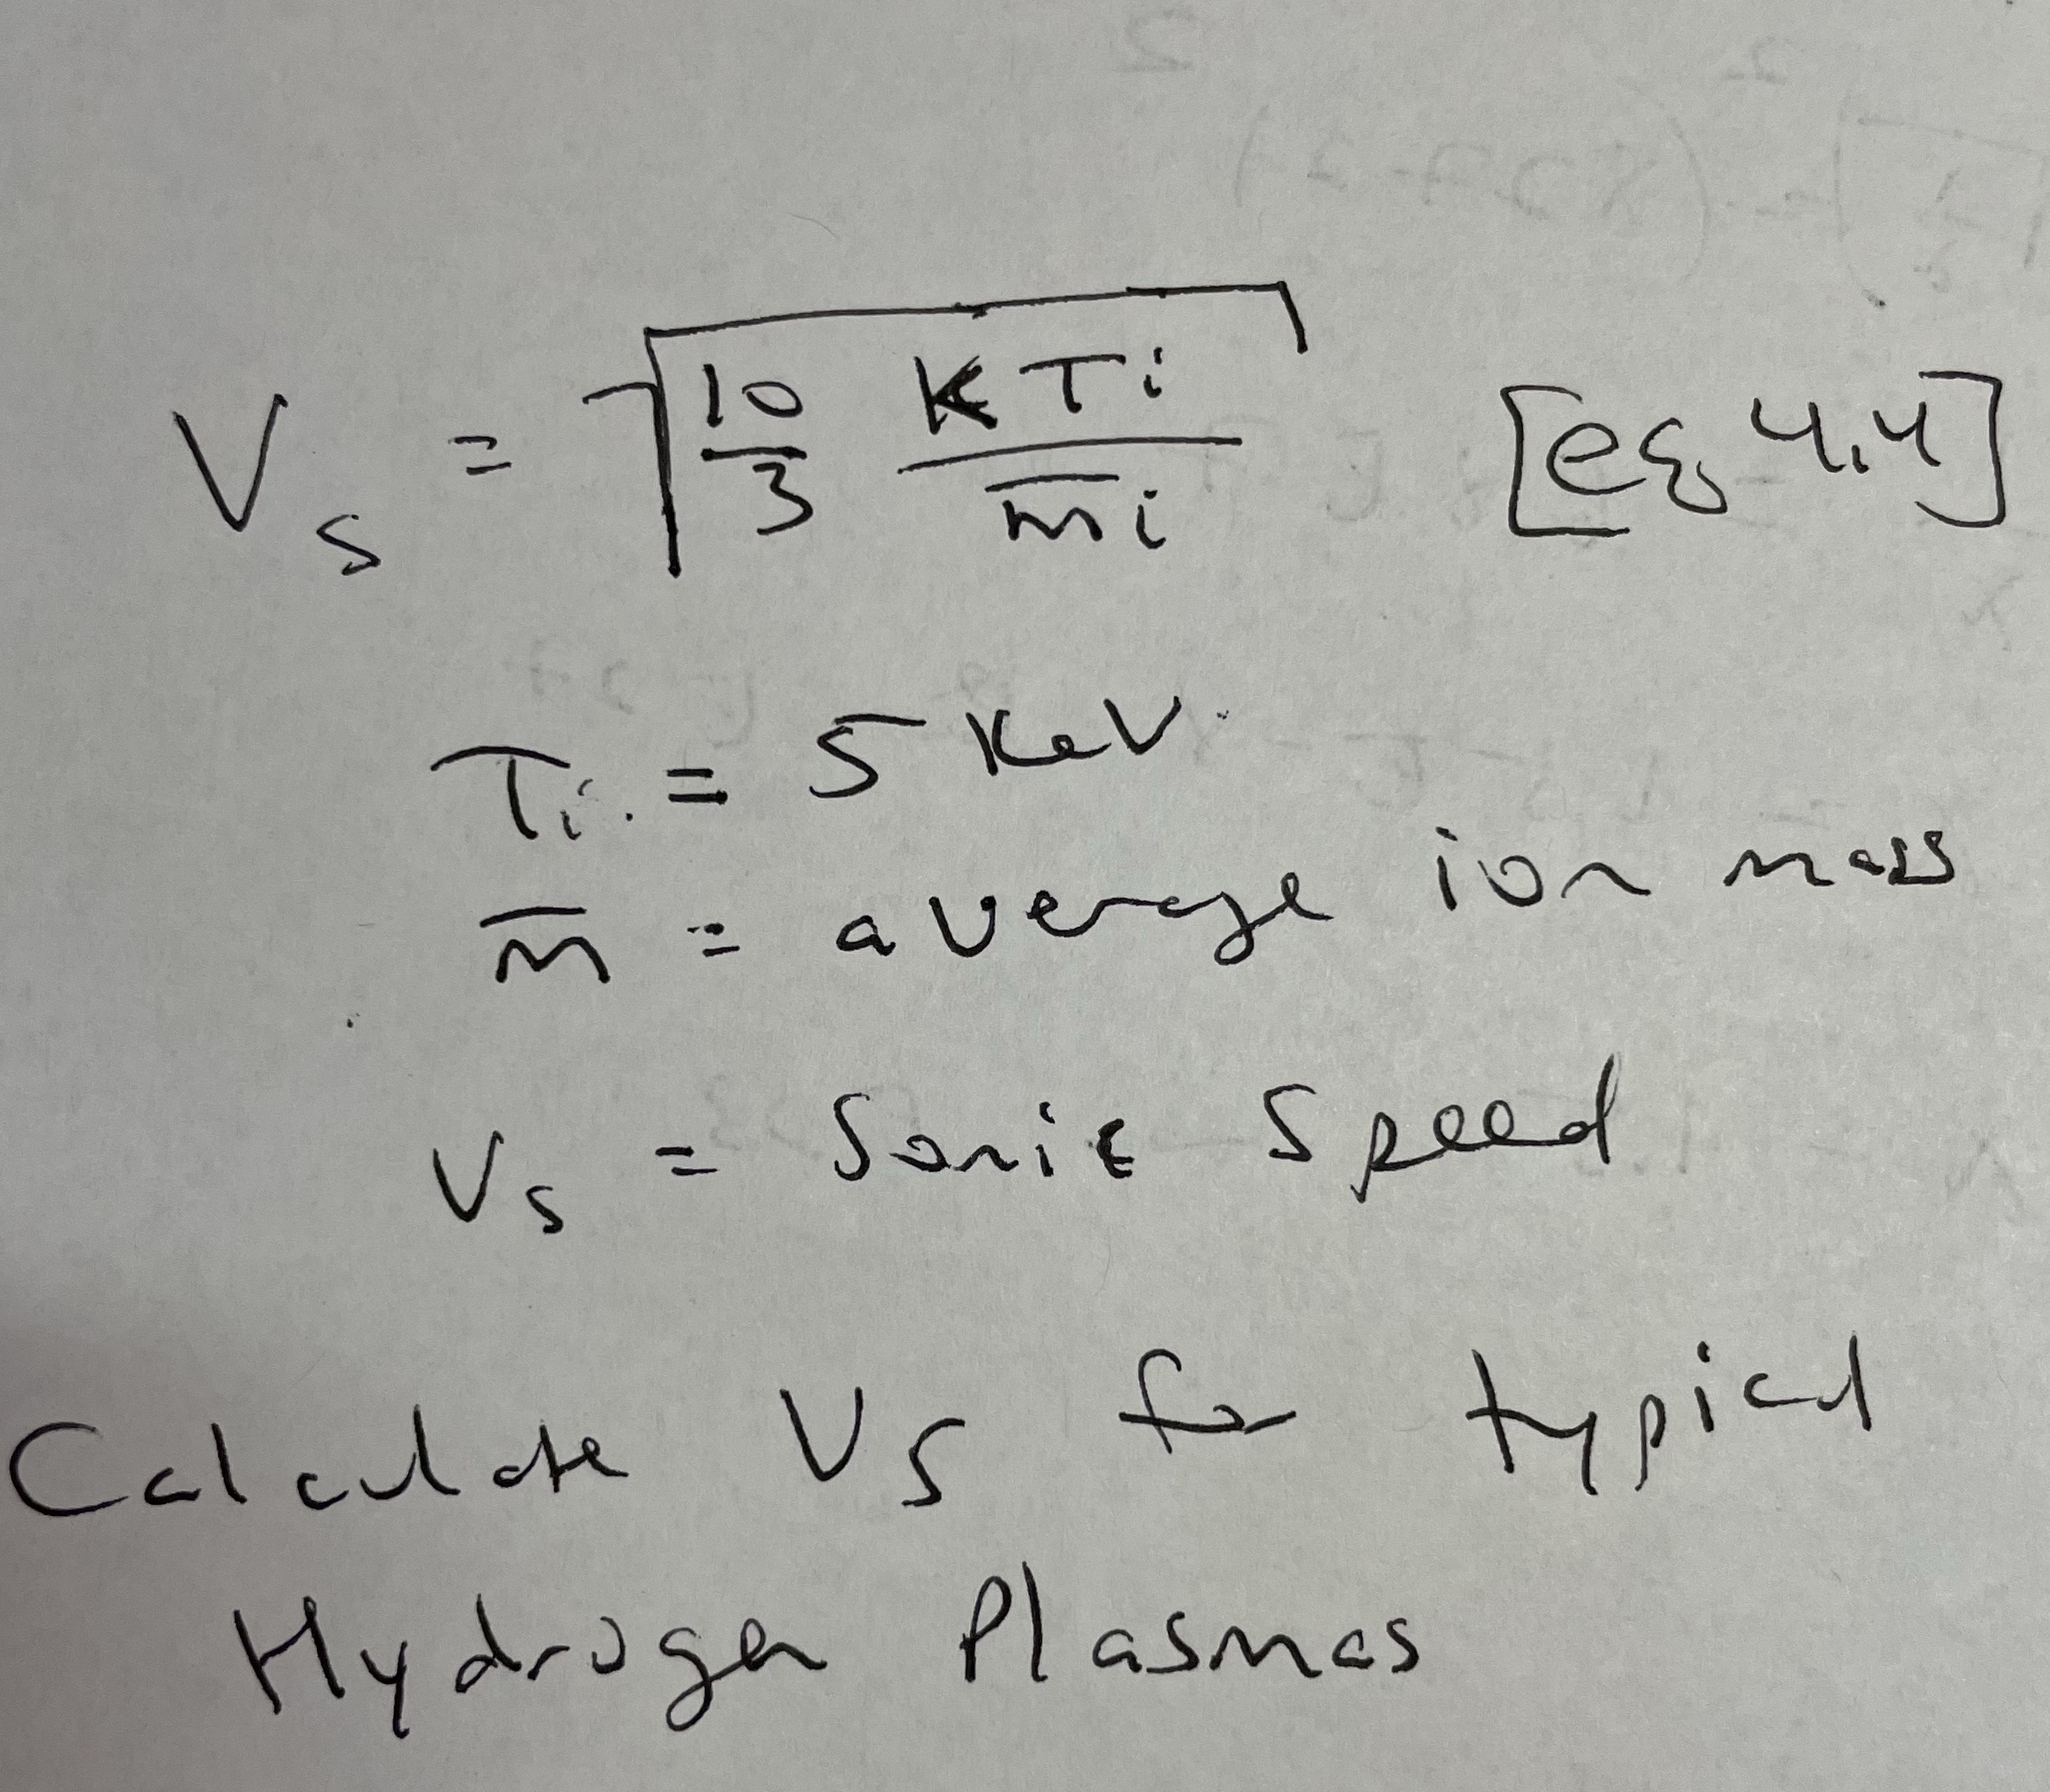 Vs = √(10/3 KTi/m̅i) [eq 4.4]
Ti = 5 KeV
m̅ = average ion mass
Vs = Sonic Speed
Calculate Vs for typical
Hydrogen Plasmas